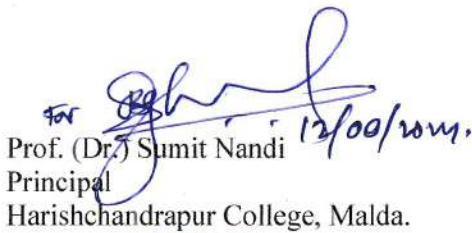 For
Prof. (Dr.) Sumit Nandi
Principal
Harishchandrapur College, Malda.